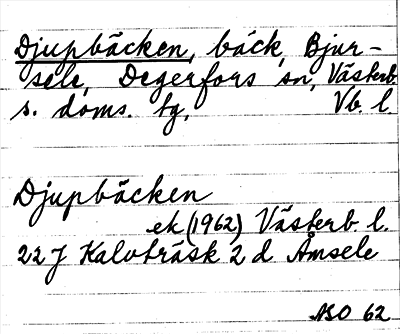 Djupbäcken, bäck, Bjur-
sele, Degerfors sn, Västerb.
s. doms. tg, Vb. l.
Djupbäcken
ek (1962) Västerb. l.
22 J Kalvträsk 2 d Åmsele
ASO 62